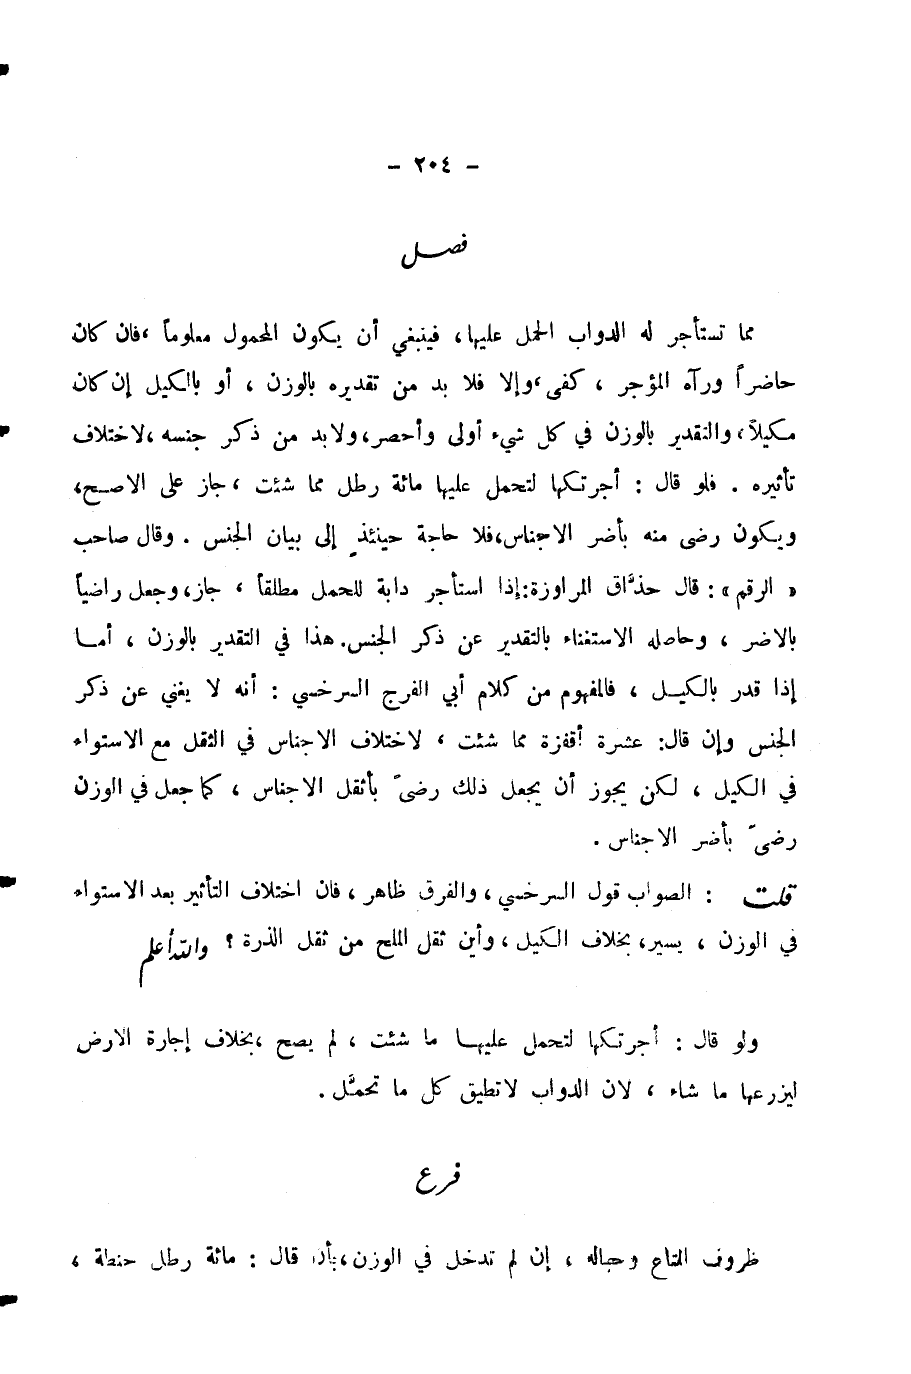 - ٢٠٤ -
فصل
مما تستأجر له الدواب الحمل عليها، فينبغي أن يكون المحمول معلوماً ،فان كان
حاضراً ورآه المؤجر ، كفى ،وإلا فلا بد من تقديره بالوزن ، أو بالكيل إن كان
مكيلاً، والتقدير بالوزن في كل شيء أولى وأحصر، ولابد من ذكر جنسه ،لاختلاف
تأثيره . فلو قال : أجرتكها لتحمل عليها مائة رطل مما شئت ، جاز على الاصح،
ويكون رضى منه بأضر الاجناس،فلا حاجة حينئذٍ إلى بيان الجنس . وقال صاحب
« الرقم » : قال حذَّاق المراوزة:إذا استأجر دابة للحمل مطلقاً ، جاز، وجعل راضياً
بالاضر ، وحاصله الاستغناء بالتقدير عن ذكر الجنس. هذا في التقدير بالوزن ، أما
إذا قدر بالكيل ، فالمفهوم من كلام أبي الفرج السرخسي : أنه لا يغني عن ذكر
الجنس وإن قال: عشرة أقفزة مما شئت ، لاختلاف الاجناس في الثقل مع الاستواء
في الكيل ، لكن يجوز أن يجعل ذلك رضىً بأثقل الاجناس ، كما جعل في الوزن
رضىً بأضر الاجناس .
قلت : الصواب قول السرخسي ، والفرق ظاهر ، فان اختلاف التأثير بعد الاستواء
في الوزن ، يسير، بخلاف الكيل ، وأين ثقل الملح من ثقل الذرة ؟ والله أعلم
ولو قال : أجرتكها لتحمل عليها ما شئت ، لم يصح ،بخلاف إجارة الارض
ليزرعها ما شاء ، لان الدواب لا تطيق كل ما تحمَّل .
فرع
ظروف المتاع وحباله ، إن لم تدخل في الوزن ،بأن قال : مائة رطل حنطة ،